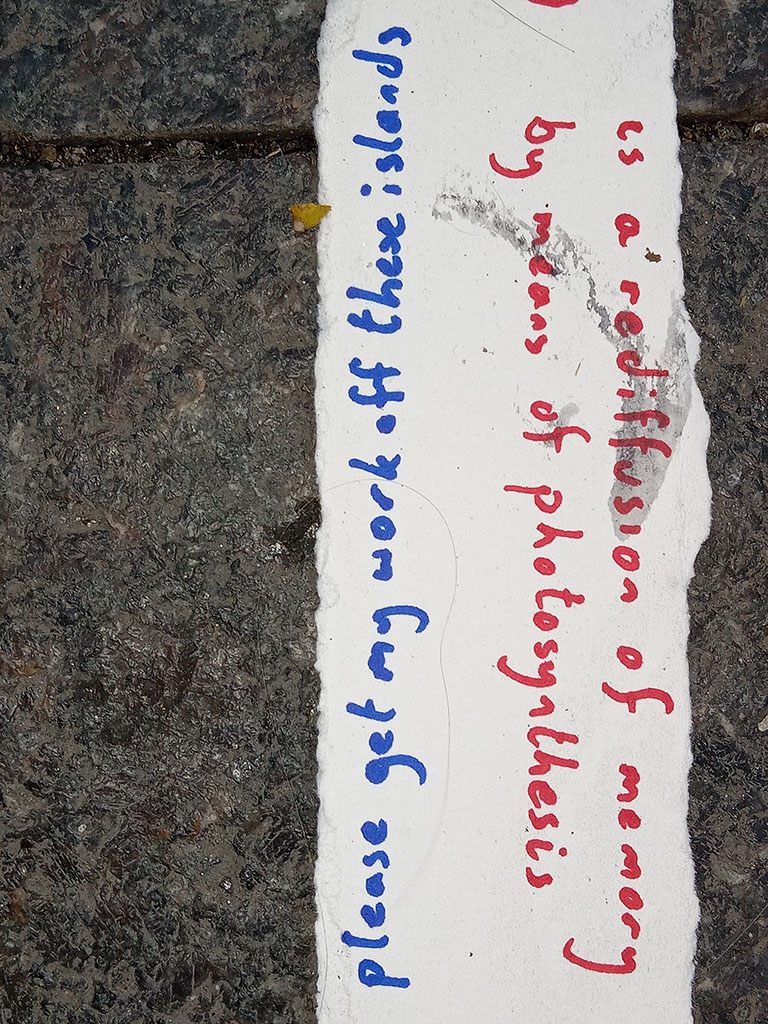 is a rediffusion of memory
by means of photosynthesis
please get my work off these islands